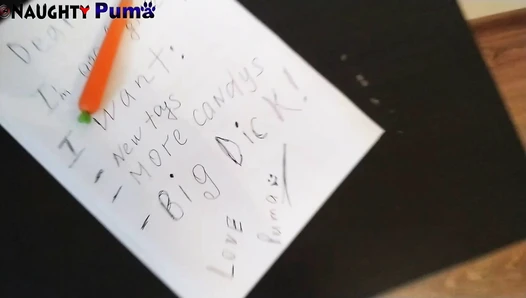 NAUGHTY PUMA
I'm
I want:
- New toys
- More candys
- Big Dick!
Love
Puma